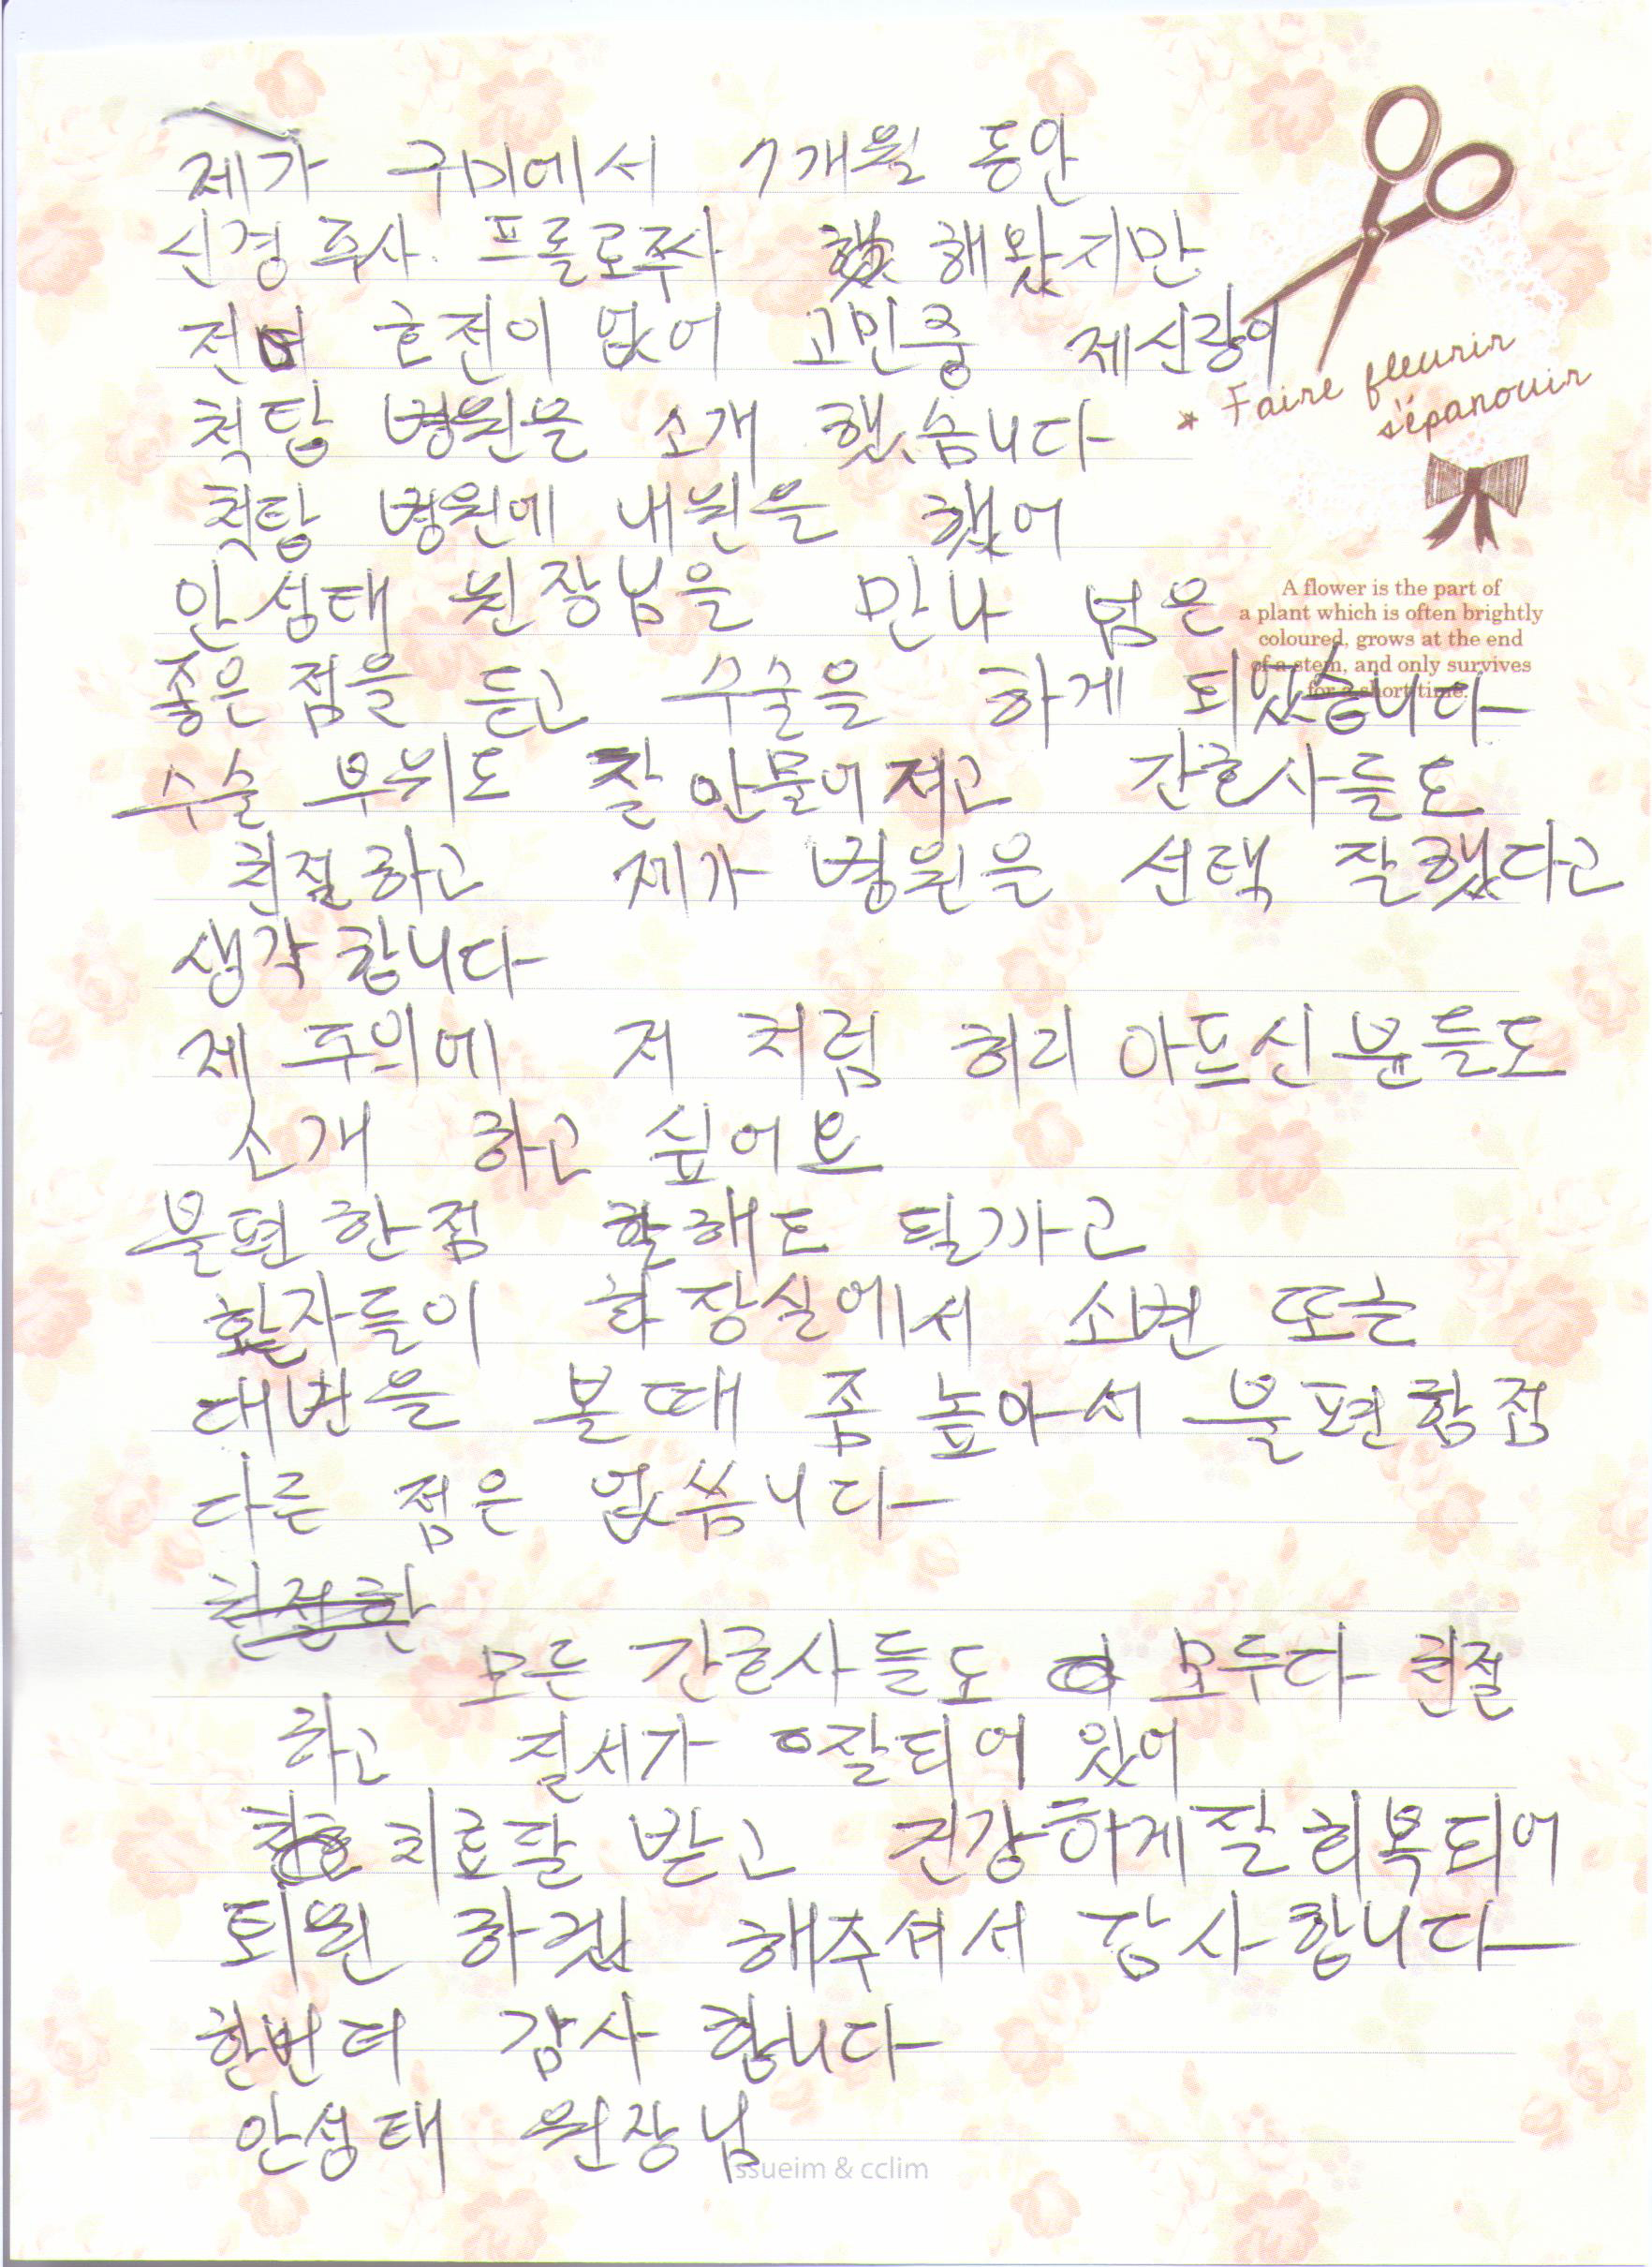 제가 구미에서 7개월 동안
신경 주사. 프롤로주사 해왔지만
전여 호전이 없어 고민중 제신랑이
척탑 병원을 소개 했습니다
척탑 병원에 내원을 했어
안성태 원장님을 만나 넘은
좋은 점을 듣고 수술을 하게 되었습니다
수술 부위도 잘 안물어져고 간호사들도
친절하고 제가 병원은 선택 잘했다고
생각 합니다
제 주의에 저 처럼 허리 아프신분들도
소개 하고 싶어요
불편 한점 말해도 될까고
환자들이 화장실에서 소변 또는
대변을 볼때 좀 높아서 불편함점
다른 점은 없씀니다
친절한
모든 간호사들도 모두다 친절
하고 질서가 잘되어 있어
치료잘 받고 건강하게잘회복되어
퇴원 하겠 해주셔서 감사합니다
한번더 감사 합니다
안성태 원장님
* Faire fleurir
s'épanouir
A flower is the part of
a plant which is often brightly
coloured, grows at the end
of a stem, and only survives
for a short time.
ssueim & cclim